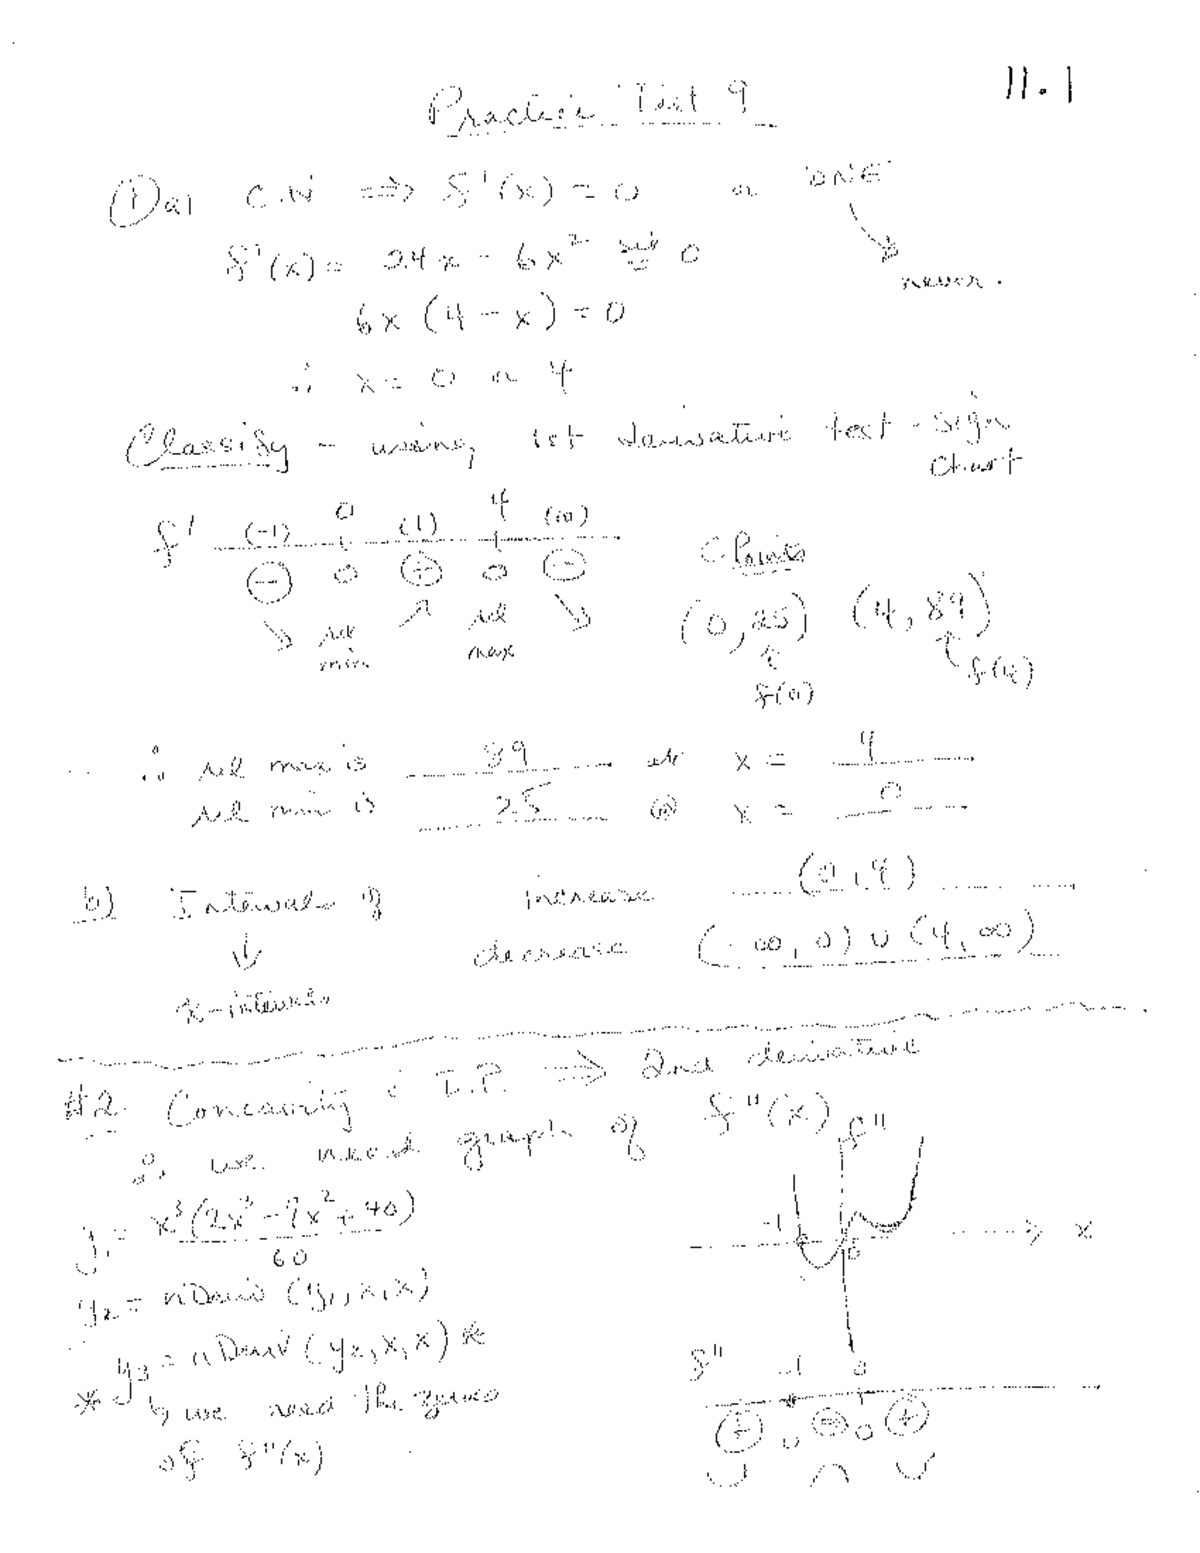 11.1
Practice Test 9
① a) C.N ⇒ f'(x) = 0 or DNE
never.
f'(x) = 24x - 6x² set = 0
6x (4 - x) = 0
∴ x = 0 or 4
Classify - using 1st derivative test - sign
chart
f' (-1) 0 (1) 4 (10)
⊖ 0 ⊕ 0 ⊖
↘ rel min ↗ rel max ↘
C Points
(0, 25) (4, 89)
f(0) f(4)
∴ rel max is 89 at x = 4
rel min is 25 @ x = 0
b) Intervals of increase (0, 4)
decrease (-∞, 0) ∪ (4, ∞)
x-intervals
#2. Concavity & I.P. ⇒ 2nd derivative
∴ we need graph of f"(x)
f"
-1 0 x
y₁ = x³(2x³ - 9x² + 40)
60
y₂ = nDeriv (y₁, x, x)
* y₃ = nDeriv (y₂, x, x) *
↳ we need the zeros
of f"(x)
f" -1 0
⊕ 0 ⊖ 0 ⊕
∪ ∩ ∪